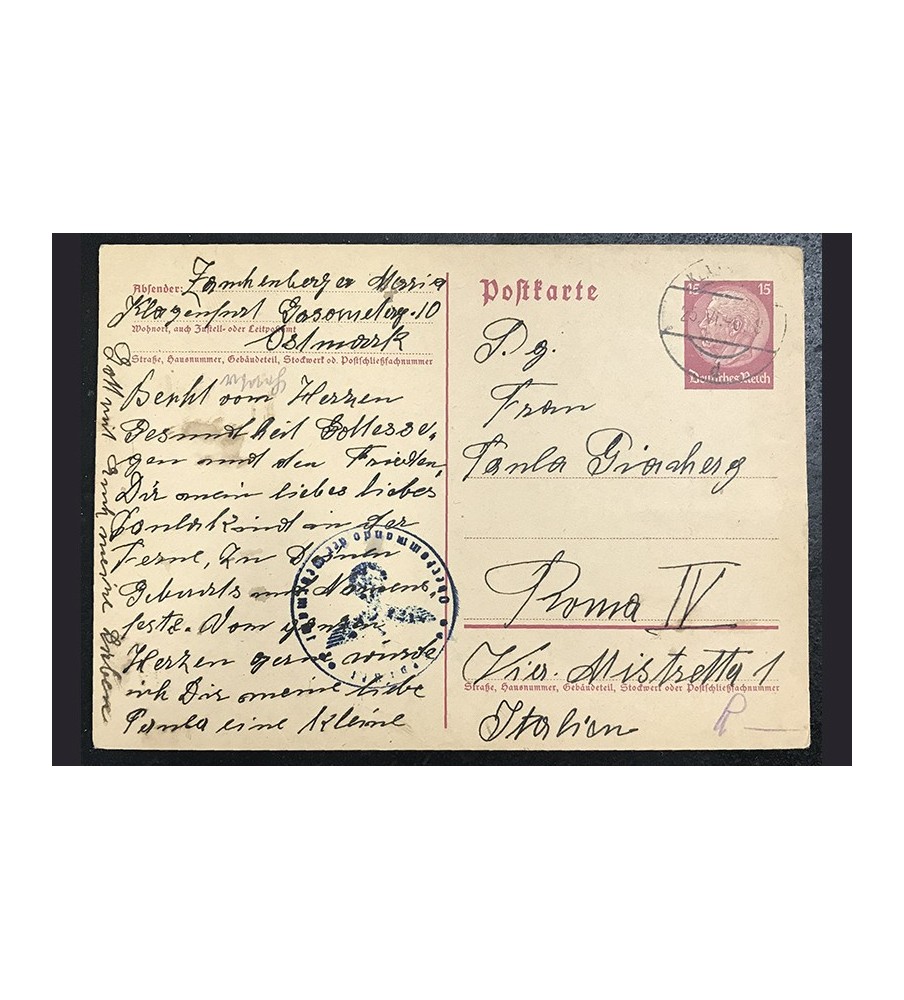 Absender: Zamhenberger Maria
Klagenfurt Gasometerg. 10
Wohnort, auch Zustell- oder Leitpostamt
Ostmark
Straße, Hausnummer, Gebäudeteil, Stockwerk od. Postschließfachnummer
vom Herzen
Gesundheit Gottesse-
gen und den Frieden,
Dir mein liebes liebes
Paulakind in der
Ferne, zu Deinen
Geburts und Namens
feste. Vom ganzen
Herzen gern würde
ich Dir meine liebe
Paula eine kleine
Gott mit Euch meine
Oberkommando der Wehrmacht
Postkarte
15 15
Deutsches Reich
P. g.
Frau
Paula Giacherg
Roma IV
Via. Mistretta 1
Straße, Hausnummer, Gebäudeteil, Stockwerk oder Postschließfachnummer
Italien
R